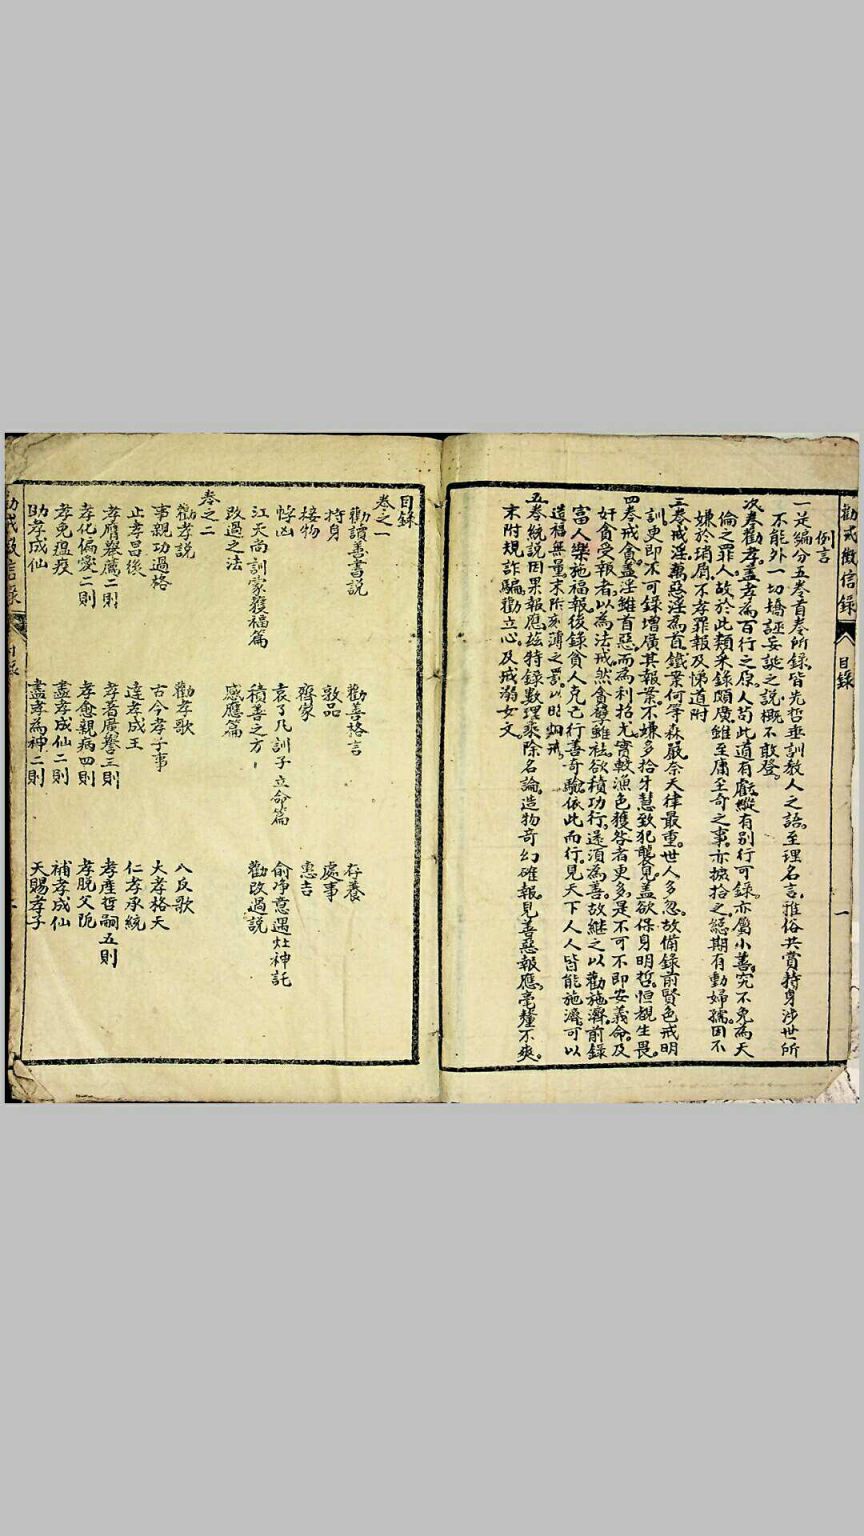 勸戒徵信錄
目錄
一
例言
一是編分五卷首卷所錄皆先哲垂訓教人之語至理名言雅俗共賞持身涉世所
不能外一切矯誣妄誕之說概不敢登
次卷勸孝蓋孝為百行之原人苟此道有虧縱有別行可錄亦屬小善究不免為天
倫之罪人故於此類采錄頗廣雖至庸至奇之事亦摭拾之總期有動婦孺因不
嫌於瑣屑不孝罪報及悌道附
三卷戒淫萬惡淫為首鐵案何等森嚴奈天律最重世人多忽故備錄前賢色戒明
訓更即不可錄增廣其報案不嫌多拾牙慧致犯襲見蓋欲保身明哲恒覩生畏
四卷戒貪蓋淫雖首惡而為利招尤實較漁色獲咎者更多是不可不即安義命及
奸貪受報者以為法戒然貪孽雖袪欲積功行還須為善故繼之以勸施濟前錄
富人樂施福報後錄貧人克己行善奇驗依此而行見天下人人皆能施濟可以
造福無量末附刻薄之罰以昭炯戒
五卷統說因果報應茲特錄數理乘除名論造物奇幻確報見善惡報應毫釐不爽
末附規詐騙勸立心及戒溺女文
目錄
卷之一
勸讀善書說 勸善格言 存養
持身 敦品 處事
接物 齊家 惠吉
悖凶 袁了凡訓子立命篇 俞淨意遇灶神記
江天尚訓蒙獲福篇 積善之方 勸改過說
改過之法 感應篇
卷之二
勸孝說 勸孝歌 八反歌
事親功過格 古今孝子事 大孝格天
止孝昌後 達孝成王 仁孝承統
孝膺舉薦二則 孝著廣譽三則 孝產哲嗣五則
孝化偏愛二則 孝愈親病四則 孝脫父阨
孝免瘟疫 盡孝成仙二則 補孝成仙
助孝成仙 盡孝為神二則 天賜孝子
勸戒徵信錄
目錄